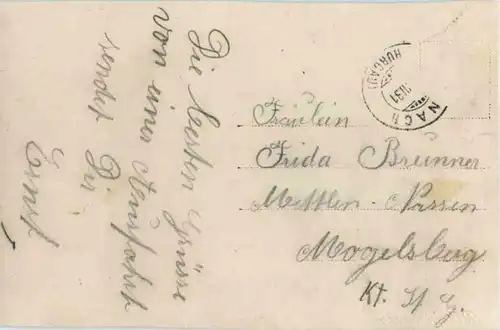 Die besten Grüsse
von einer Ausfahrt
sendet Dir
Ernst
Fräulein
Frida Brunner
Mettlen - Nassen
Mogelsberg
Kt. St. G.
NACH
THURGAU
31